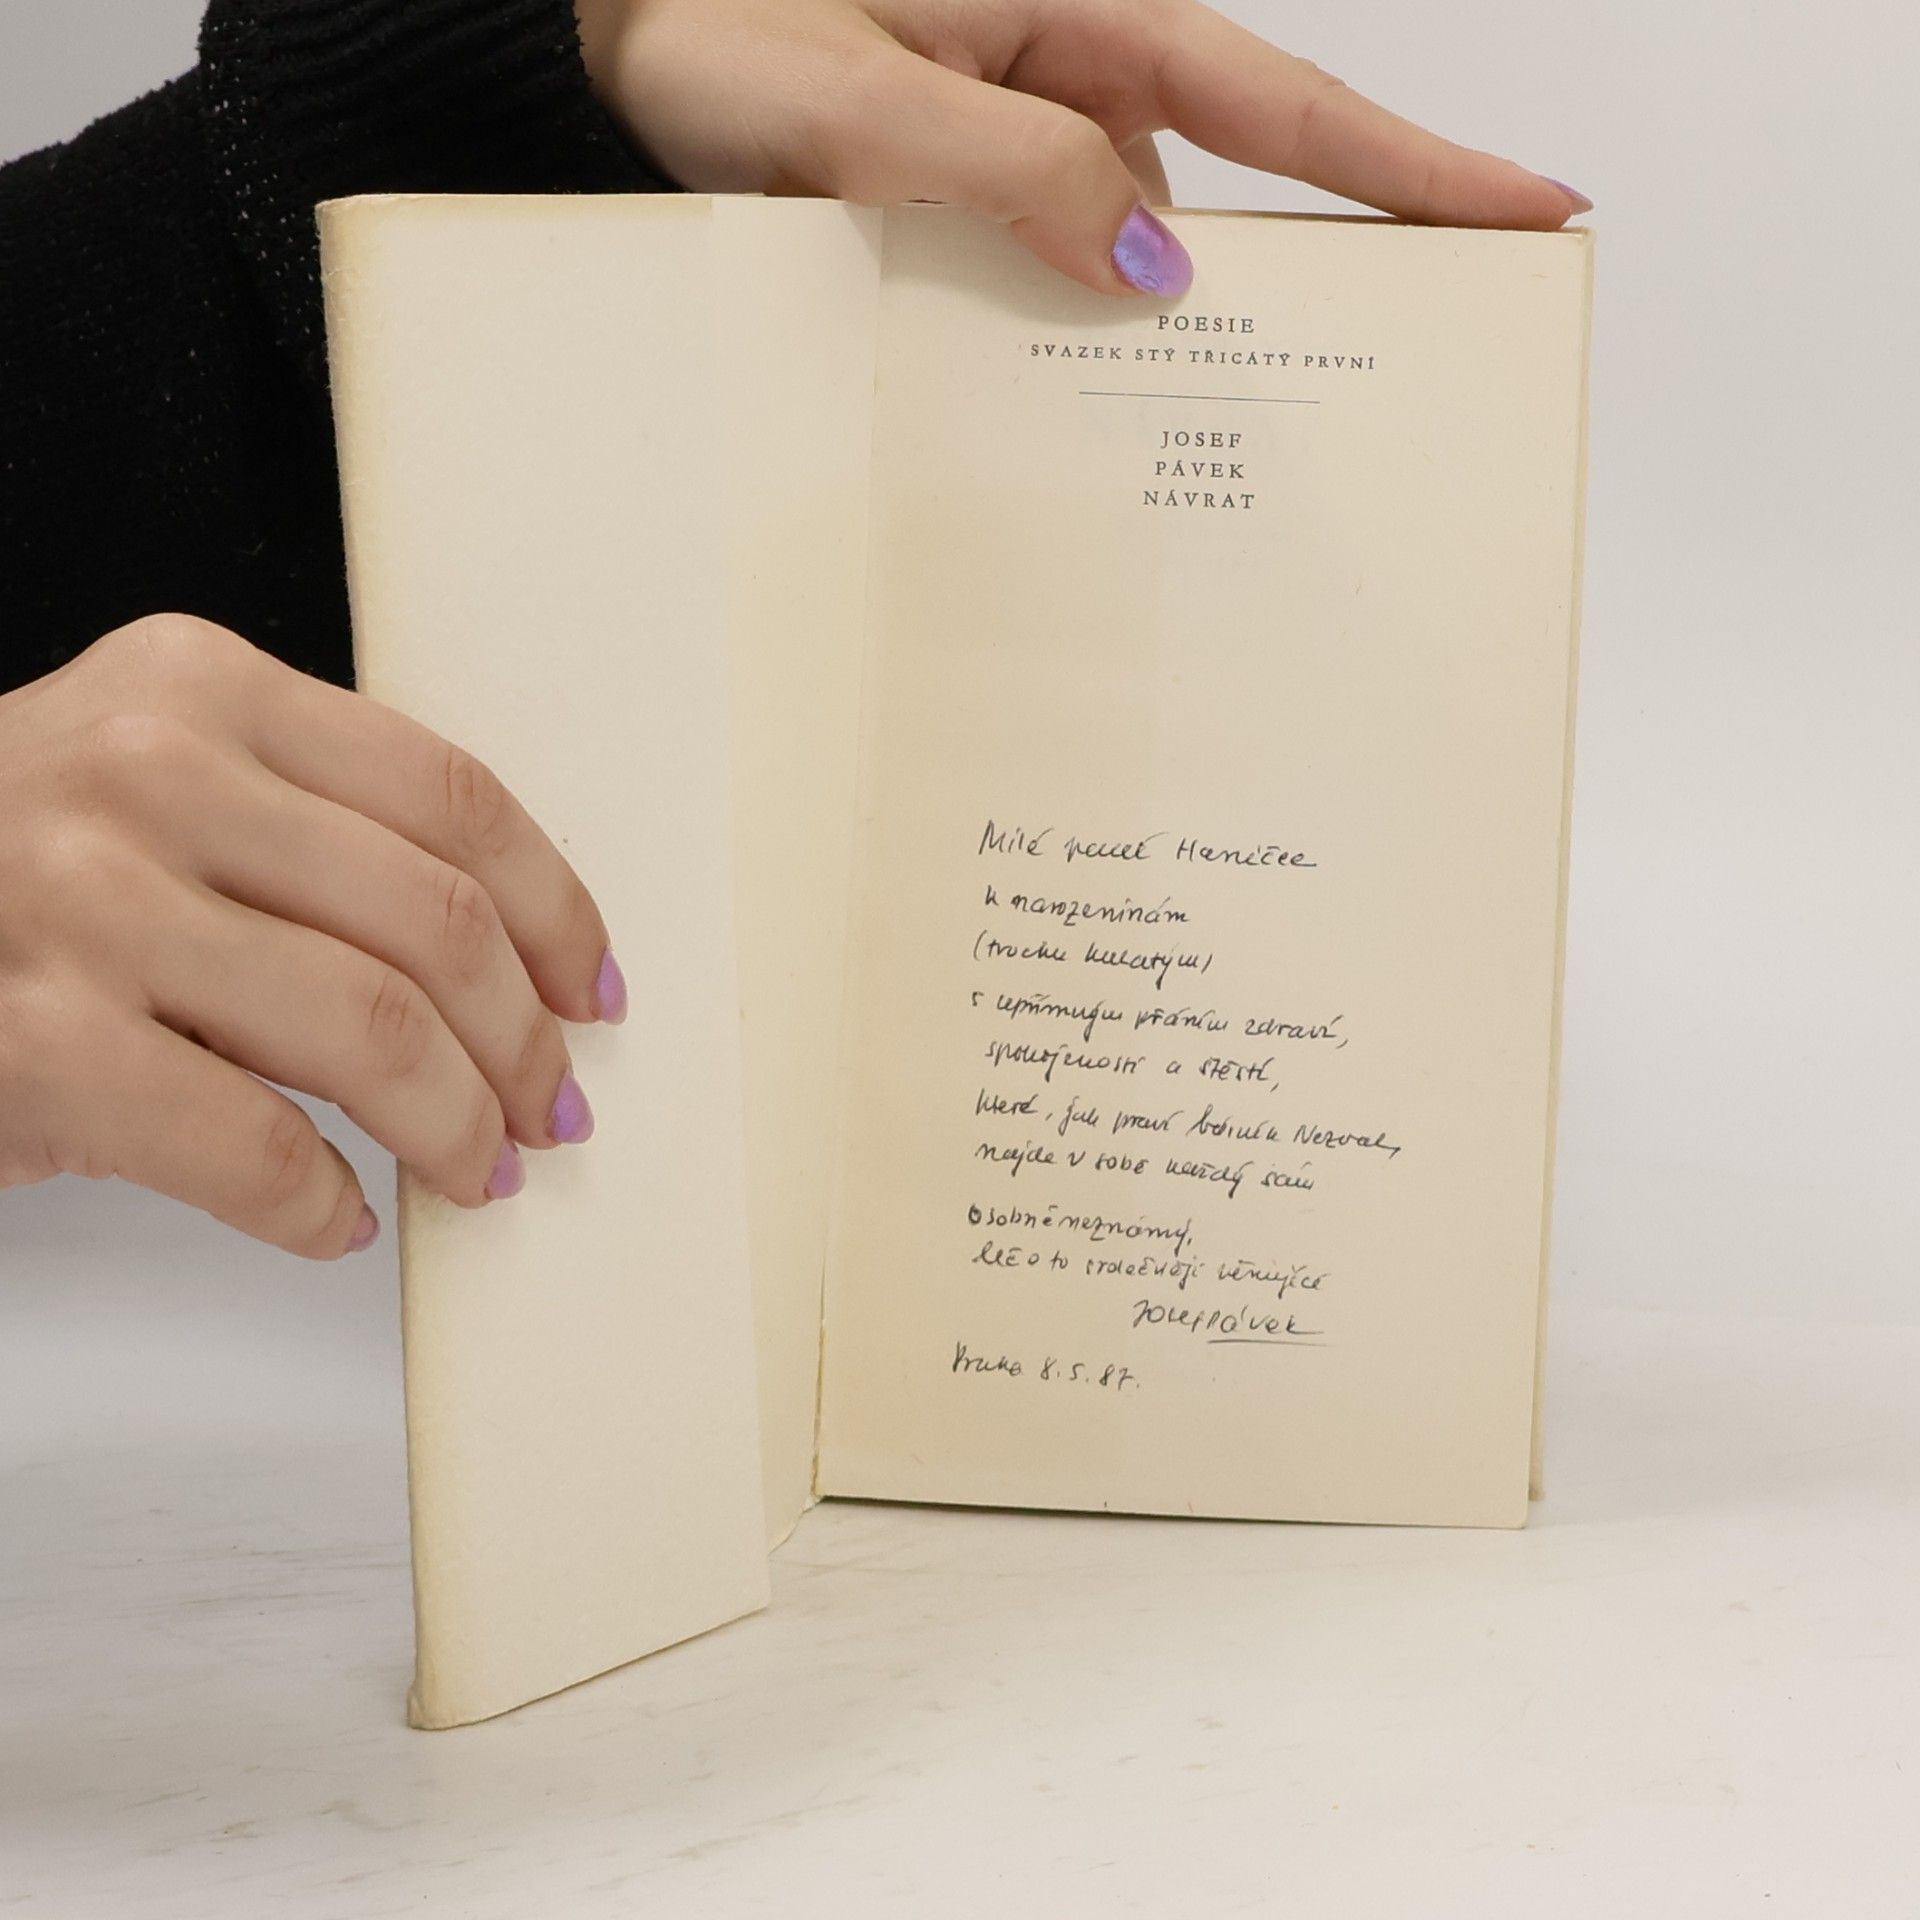 POESIE
SVAZEK STÝ TŘICÁTÝ PRVNÍ
JOSEF
PÁVEK
NÁVRAT
Milé paní Haničce
k narozeninám
(trochu kulatým)
s upřímným přáním zdraví,
spokojenosti a štěstí,
které, jak praví básník Nezval,
najde v sobě každý sám
osobně neznámý,
leč o to srdečněji věnující
Josef Pávek
Praha 8.5.87.